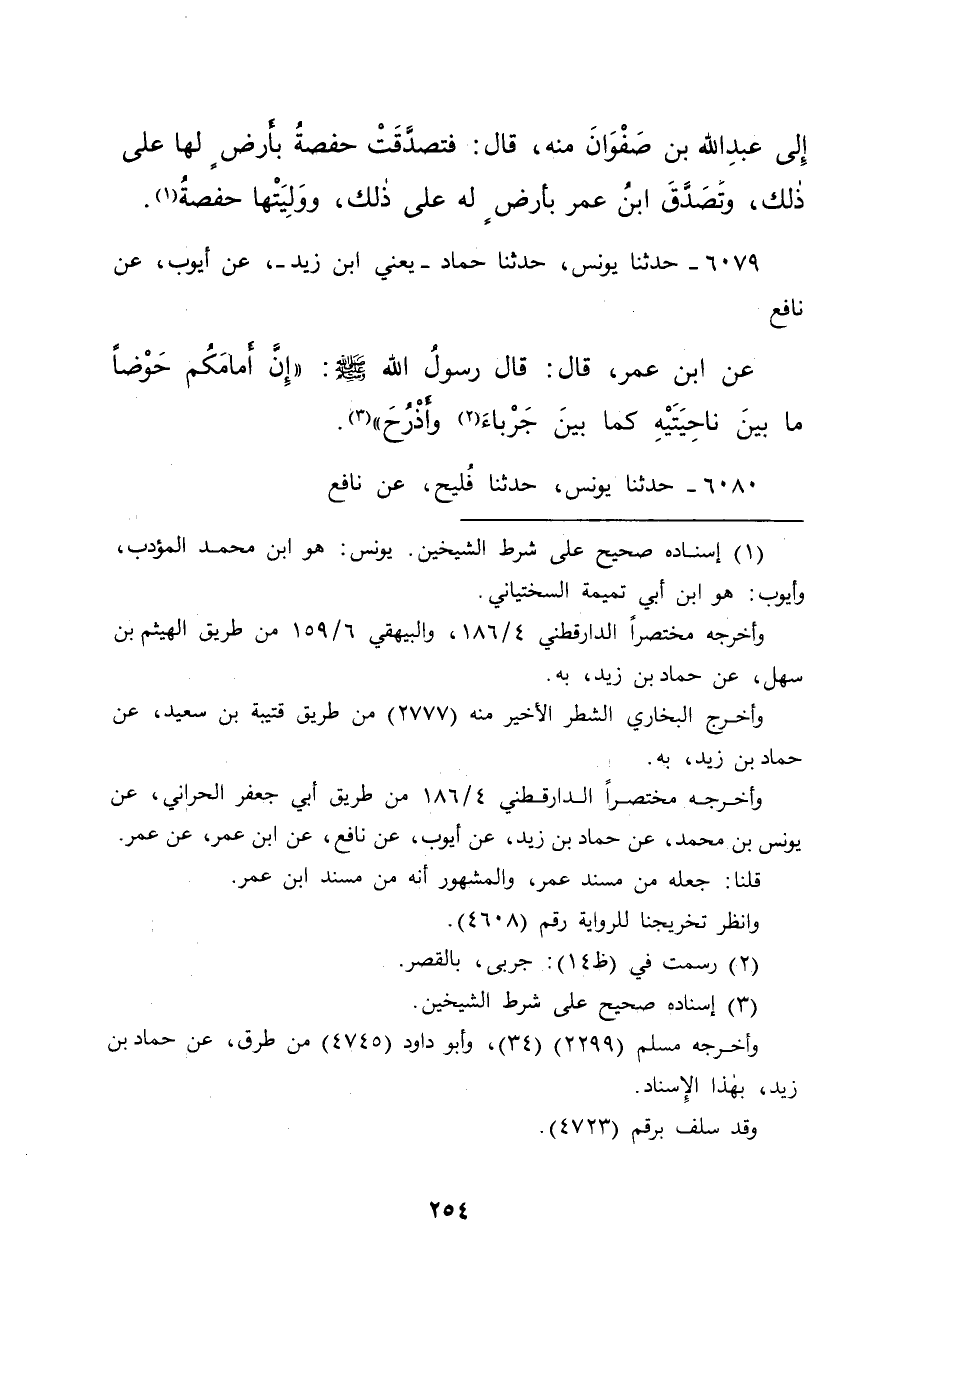 إِلى عبدِالله بن صَفْوَانَ منه، قال: فتصدَّقَتْ حفصةُ بأَرضٍ لها على
ذٰلك، وتَصَدَّقَ ابنُ عمر بأرضٍ له على ذٰلك، ووَلِيَتْها حفصةُ(١).
٦٠٧٩ ـ حدثنا يونس، حدثنا حماد ـ يعني ابن زيد ـ، عن أيوب، عن
نافع
عن ابن عمر، قال: قال رسولُ الله ﷺ: «إِنَّ أَمامَكُم حَوْضاً
ما بينَ ناحِيَتَيْهِ كما بينَ جَرْباءَ(٢) وأَذْرُحَ»(٣).
٦٠٨٠ ـ حدثنا يونس، حدثنا فُليح، عن نافع
(١) إسناده صحيح على شرط الشيخين. يونس: هو ابن محمد المؤدب،
وأيوب: هو ابن أبي تميمة السختياني.
وأخرجه مختصراً الدارقطني ١٨٦/٤، والبيهقي ١٥٩/٦ من طريق الهيثم بن
سهل، عن حماد بن زيد، به.
وأخرج البخاري الشطر الأخير منه (٢٧٧٧) من طريق قتيبة بن سعيد، عن
حماد بن زيد، به.
وأخرجه مختصراً الدارقطني ١٨٦/٤ من طريق أبي جعفر الحراني، عن
يونس بن محمد، عن حماد بن زيد، عن أيوب، عن نافع، عن ابن عمر، عن عمر.
قلنا: جعله من مسند عمر، والمشهور أنه من مسند ابن عمر.
وانظر تخريجنا للرواية رقم (٤٦٠٨).
(٢) رسمت في (ظ١٤): جربى، بالقصر.
(٣) إسناده صحيح على شرط الشيخين.
وأخرجه مسلم (٢٢٩٩) (٣٤)، وأبو داود (٤٧٤٥) من طرق، عن حماد بن
زيد، بهٰذا الإِسناد.
وقد سلف برقم (٤٧٢٣).
٢٥٤